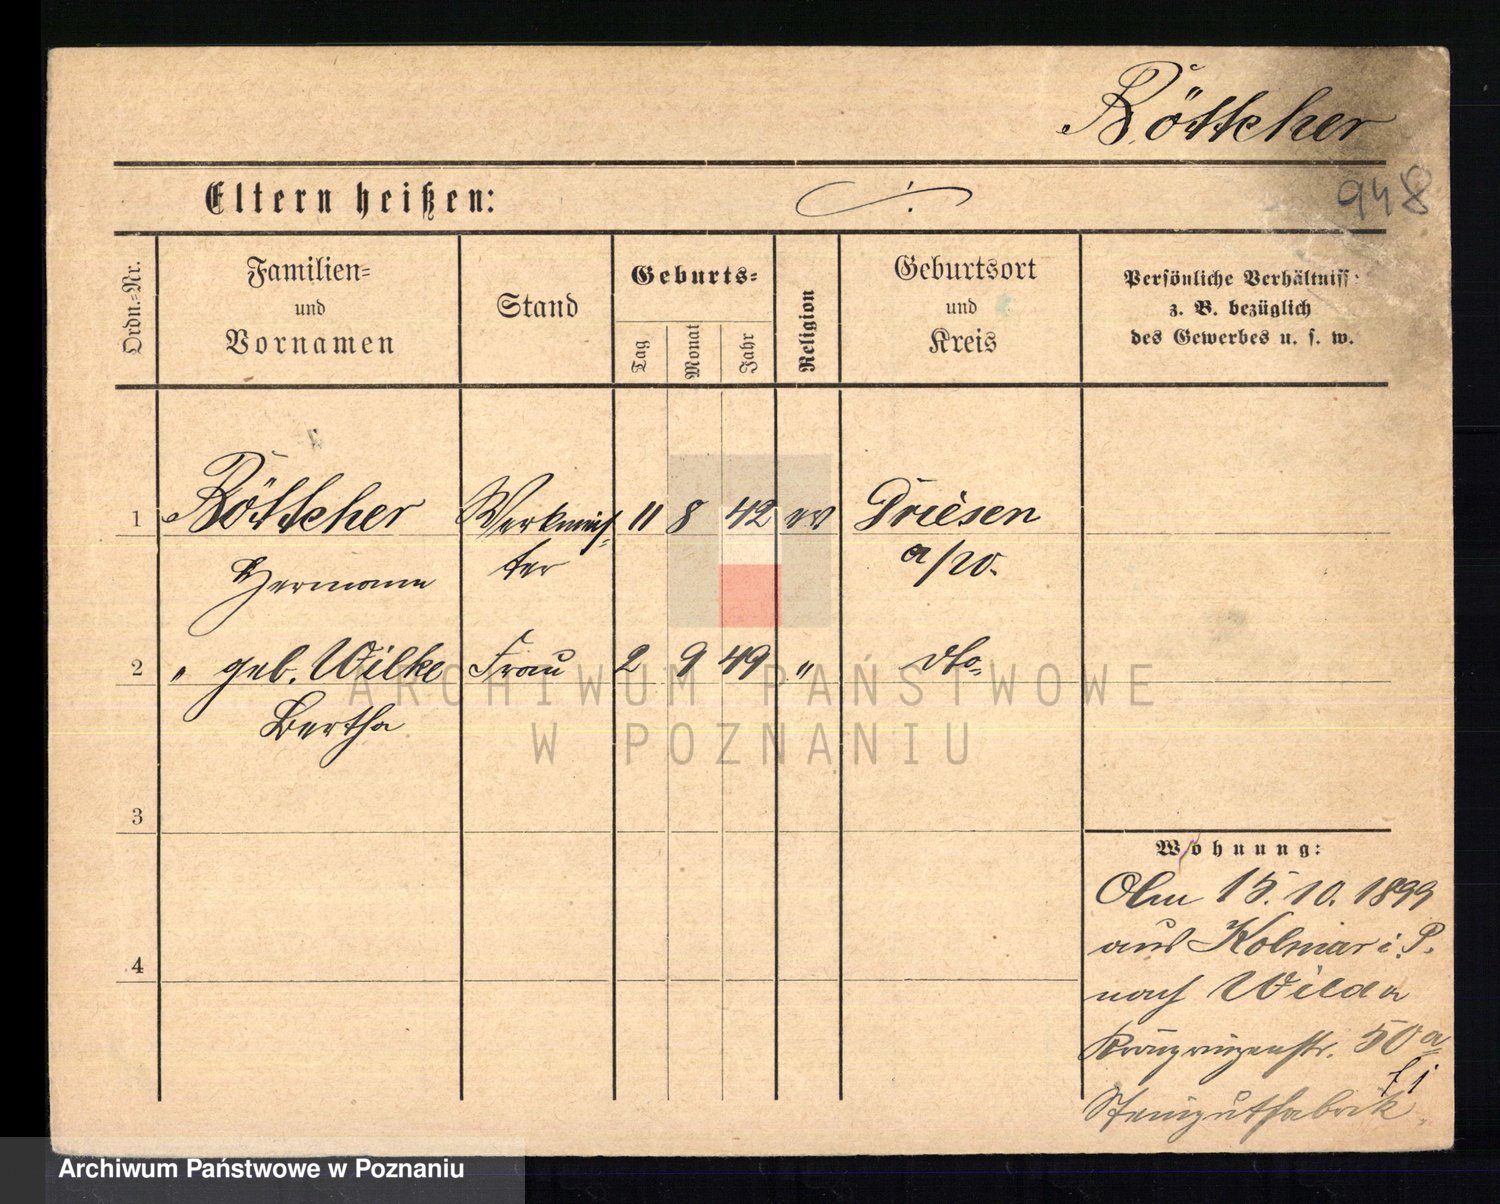 Böttcher
948
Eltern heißen:
Ordn.=Nr.
Familien=
und
Vornamen
Stand
Geburts=
Tag
Monat
Jahr
Religion
Geburtsort
und
Kreis
Persönliche Verhältniss
z. B. bezüglich
des Gewerbes u. s. w.
1 Böttcher Werkmeis= 11 8 42 ev Driesen
Hermann ter a/W.
2 " geb. Wilke Frau 2 9 49 " do.
Bertha
3
4
Wohnung:
Am 15.10.1899
aus Kolmar i. P.
nach Wilda
Kronprinzenstr. 50a
Steingutfabrik
ARCHIWUM PAŃSTWOWE
W POZNANIU
Archiwum Państwowe w Poznaniu